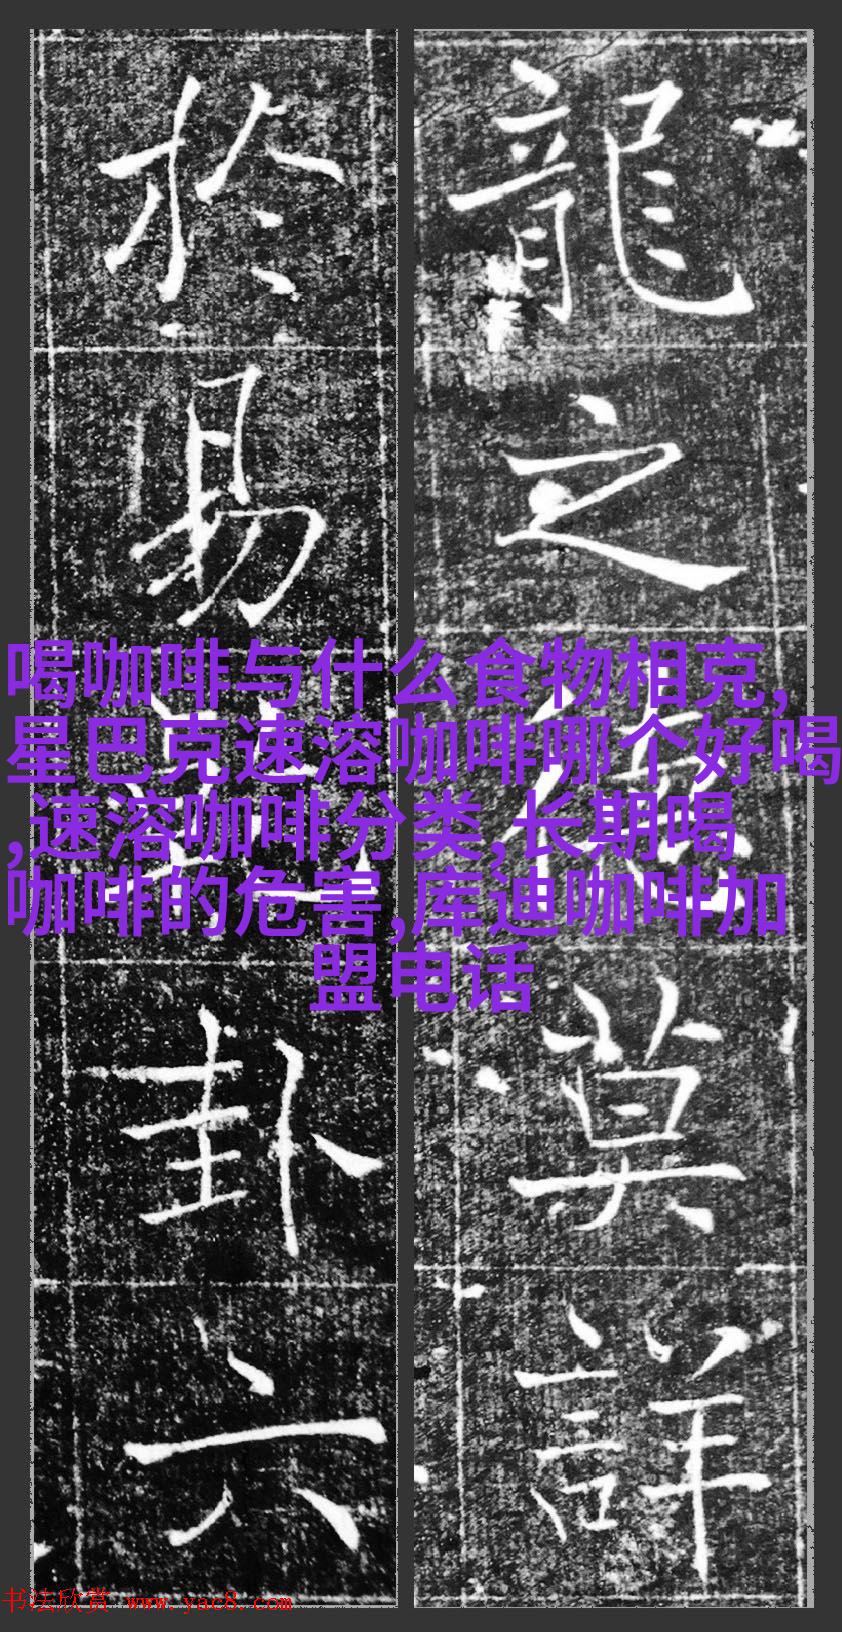 龍之莫詳
於易卦六
喝咖啡与什么食物相克,
星巴克速溶咖啡哪个好喝
,速溶咖啡分类,长期喝
咖啡的危害,库迪咖啡加
盟电话
书法欣赏 www.yac8.com